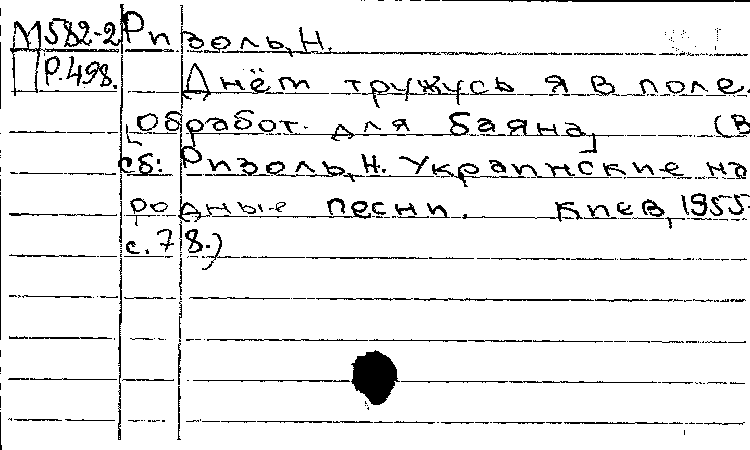 М582-2 Ризоль, Н.
Р.498. Днём тружусь я в поле.
[Обработ. для баяна] (В
сб: Ризоль, Н. Украинские на
родные песни. Киев, 1955.
с. 78.)